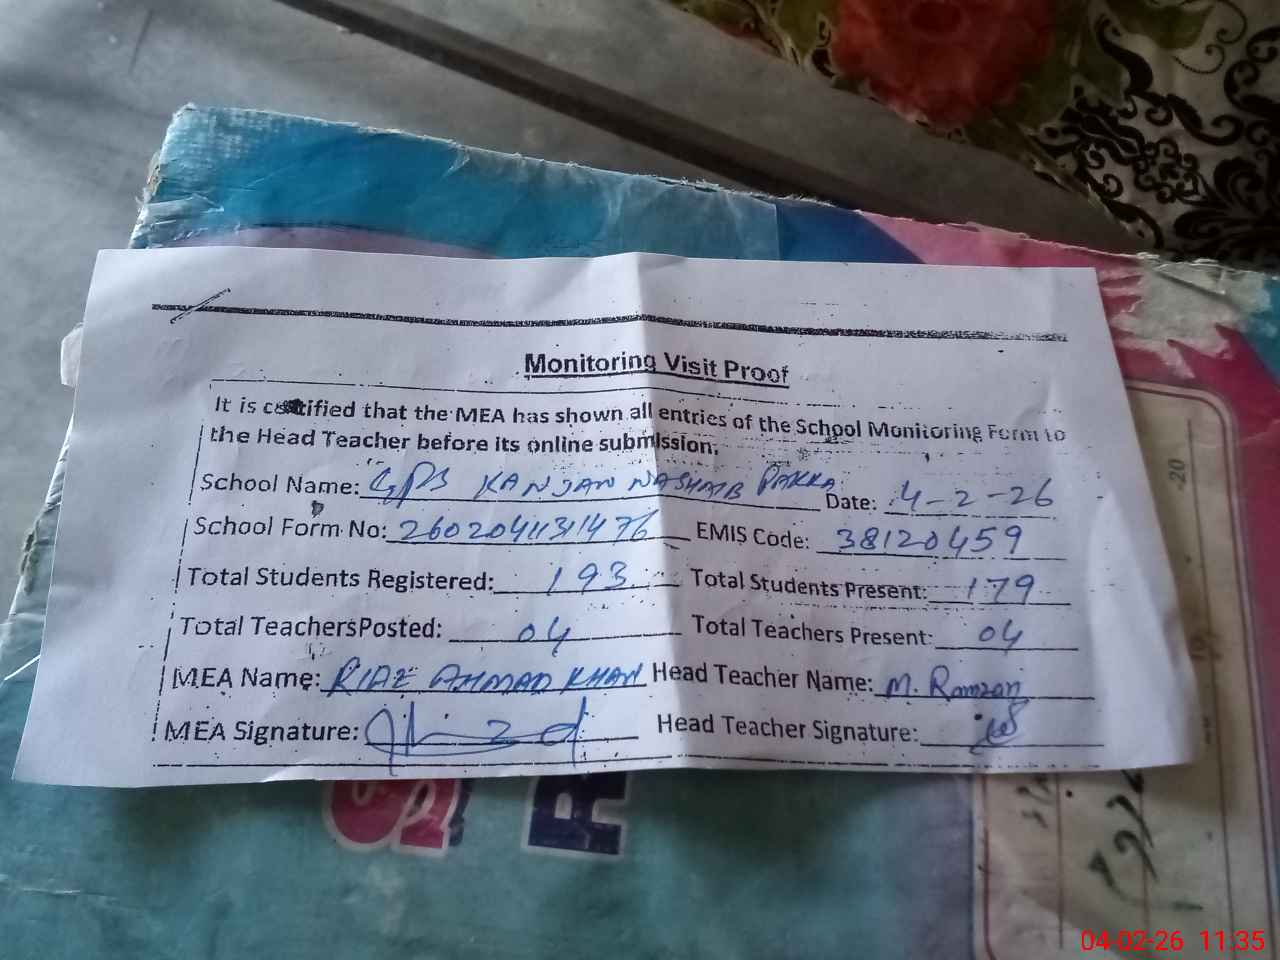 Monitoring Visit Proof
It is certified that the MEA has shown all entries of the School Monitoring Form to
the Head Teacher before its online submission.
School Name: GPS KANJAN NASHAIB PAKKA Date: 4-2-26
School Form No: 2602041131476 EMIS Code: 38120459
Total Students Registered: 193 Total Students Present: 179
Total TeachersPosted: 04 Total Teachers Present: 04
MEA Name: RIAZ AHMAD KHAN Head Teacher Name: M. Ramzan
MEA Signature: Head Teacher Signature:
04-02-26 11:35